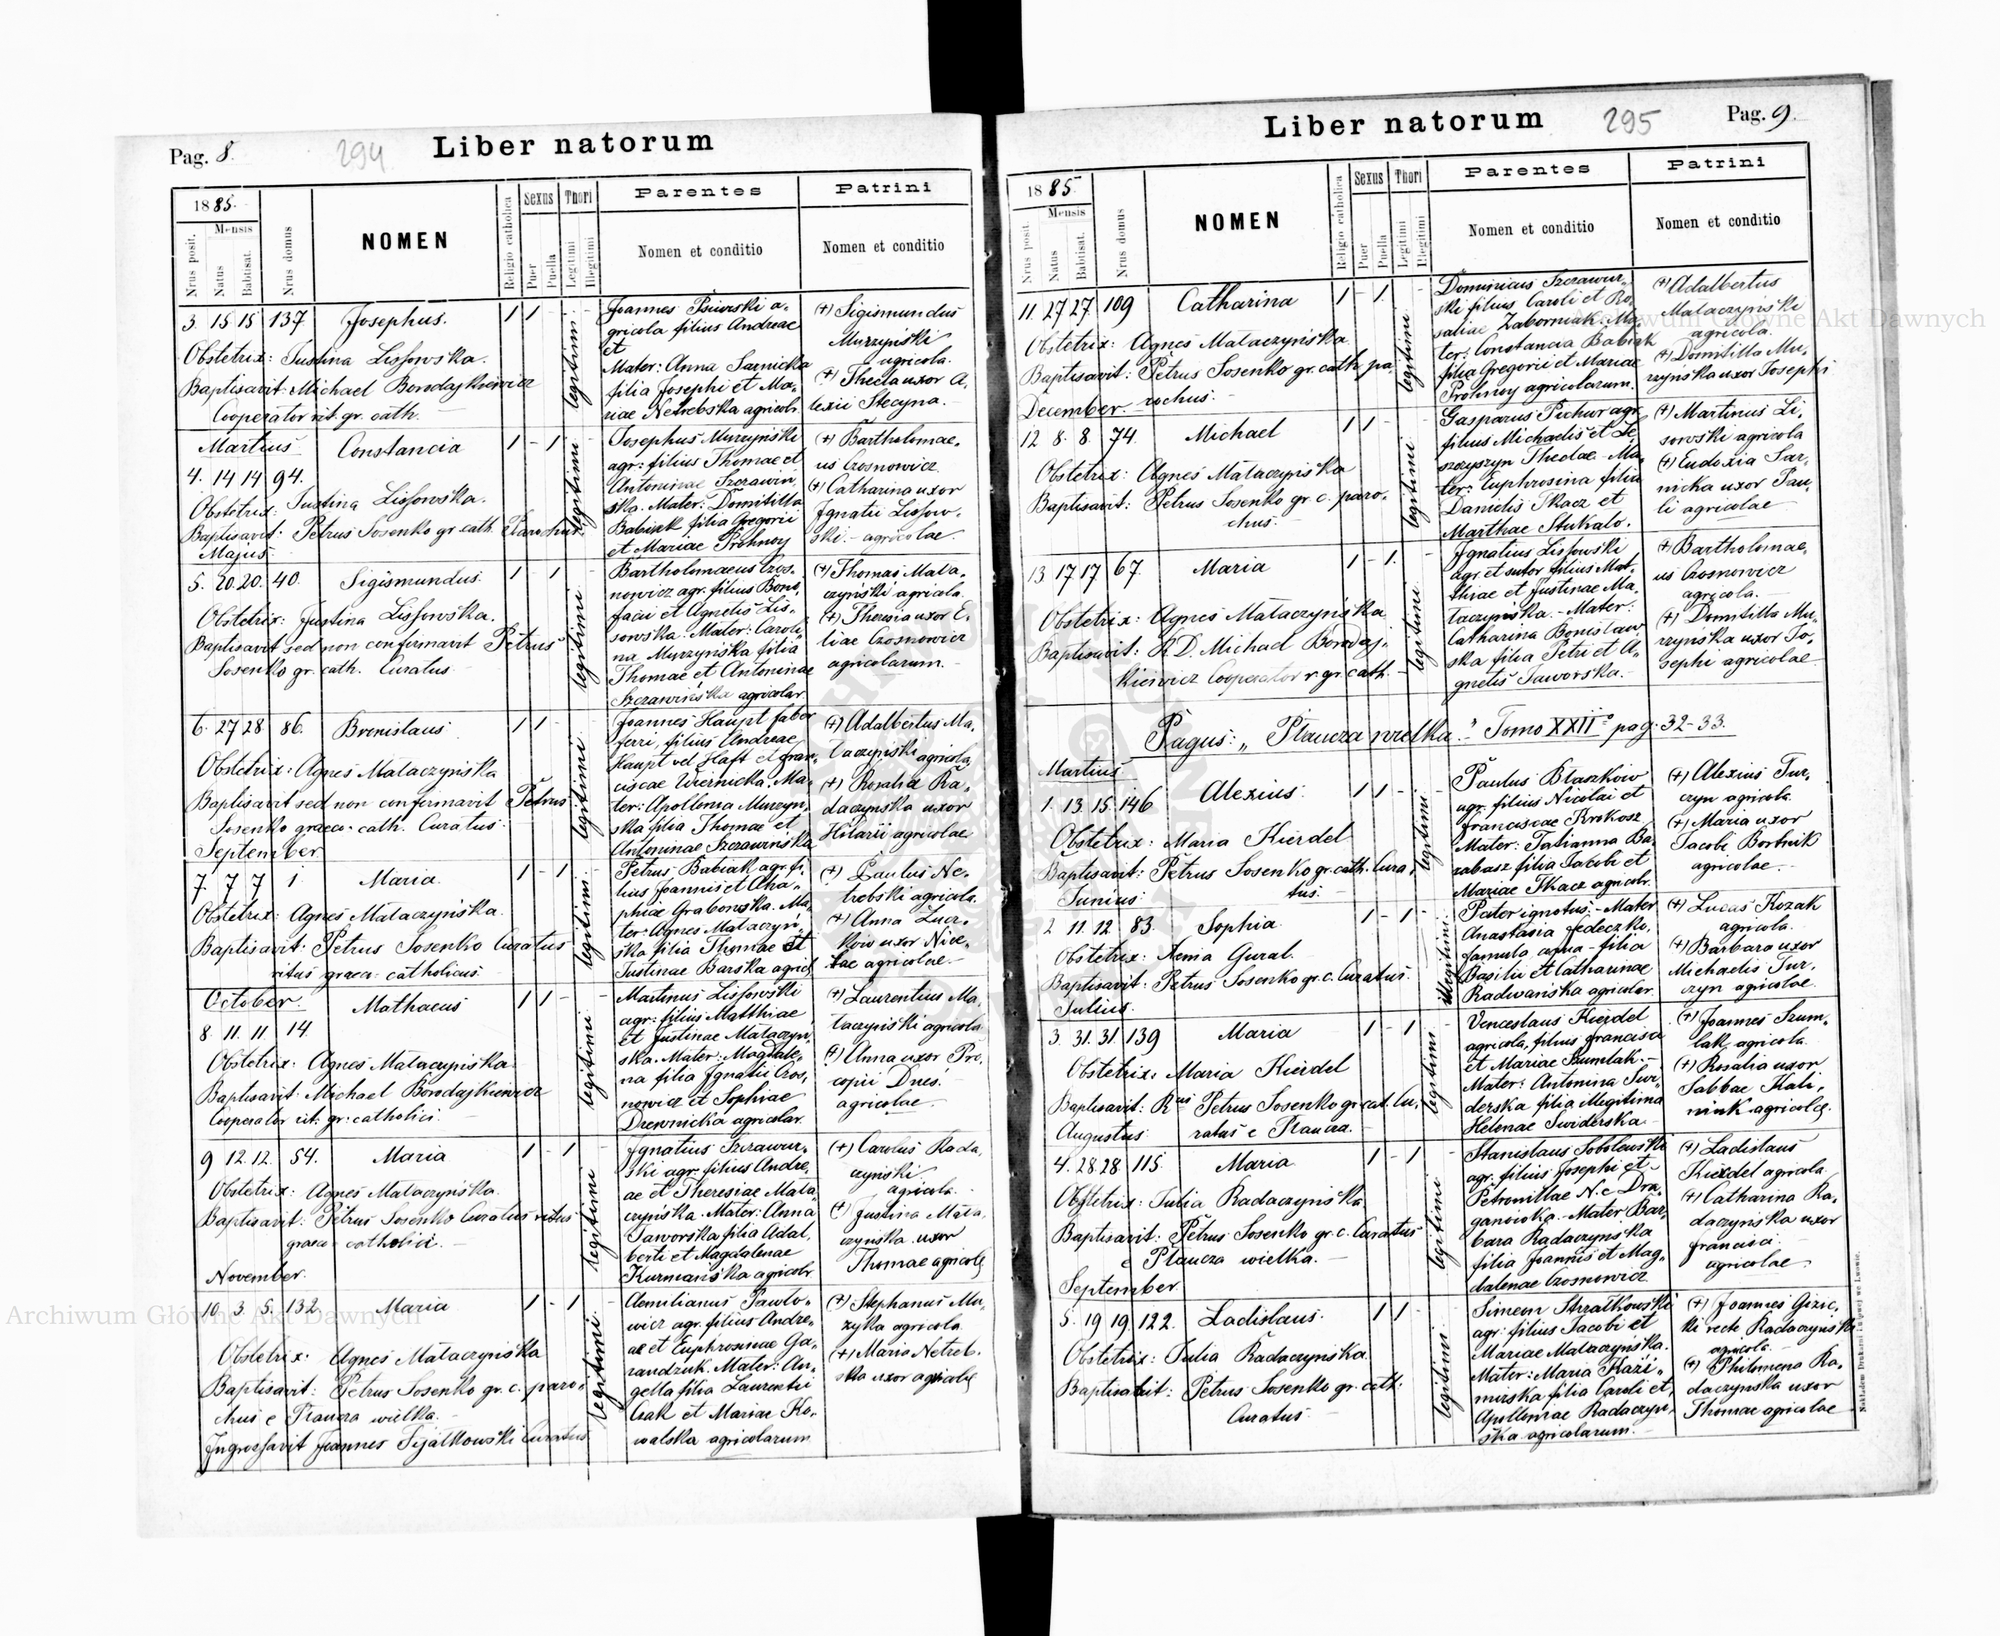 Pag. 8.
294
Liber natorum
1885.
Mensis
Nrus posit.
Natus
Babtisat.
Nrus domus
NOMEN
Religio catholica
Sexus
Puer
Puella
Thori
Legitimi
Illegitimi
Parentes
Nomen et conditio
Patrini
Nomen et conditio
3. 15 15 137 Josephus. 1 1 - -
legitimi
Obstetrix: Justina Lissowska.
Baptisavit: Michael Borodajkiewicz
Cooperator rit. gr. cath.
Joannes Psiurski a-
gricola filius Andreae
et
Mater: Anna Sarnicka
filia Josephi et Ma-
riae Netrebska agricolr.
(+) Sigismundus
Murzyński
agricola.
(+) Thecla uxor A-
lexii Stecyna.
Martius
4. 14 14 94. Constancia 1 - 1 -
legitimi
Obstetrix: Justina Lissowska.
Baptisavit: Petrus Sosenko gr. cath. Parochus
Josephus Murzyński
agr: filius Thomae et
Antoninae Szerawin,
ska. Mater: Domitilla
Babiak filia Gregorii
et Mariae Prohnoy
(+) Bartholomae-
us Crosnowicz
(+) Catharina uxor
Ignatii Lissow-
ski. - agricolae.
Majus
5. 20. 20. 40. Sigismundus. 1 1 -
legitimi
Obstetrix: Justina Lissowska.
Baptisavit sed non confirmavit Petrus
Sosenko gr. cath. Curatus
Bartholomaeus Cros-
nowicz agr. filius Boni-
facii et Agnetis Lis-
sowska. Mater: Caroli-
na Murzyńska filia
Thomae et Antoninae
Szerawińska agricolar.
(+) Thomas Mata-
czyński agricola.
(+) Theresia uxor E-
liae Crosnowicz
agricolarum.
6. 27 28 86. Bronislaus 1 1 -
legitimi
Obstetrix: Agnes Mataczyńska
Baptisavit sed non confirmavit Petrus
Sosenko graeco-cath. Curatus.
Joannes Haupt faber
ferri, filius Andreae
Haupt vel Haft et Fran-
ciscae Wiernicka. Ma-
ter: Apollonia Murzyn-
ska filia Thomae et
Antoninae Szerawińska
(+) Adalbertus Ma-
taczyński agricola,
(+) Rosalia Ra-
daczyńska uxor
Hilarii agricolae
September
7. 7 7 1. Maria. 1 - 1 -
legitimi
Obstetrix: Agnes Mataczyńska.
Baptisavit: Petrus Sosenko Curatus
ritus graeci-catholicus.
Petrus Babiak agr. fi-
lius Joannis et Aha-
phiae Grabowska. Ma-
ter: Agnes Mataczyn-
ska filia Thomae et
Justinae Barska agricol
(+) Paulus Ne-
trebski agricola.
(+) Anna
uxor Nice-
tae agricolae.
October
8. 11. 11. 14 Mathaeus 1 1 -
legitimi
Obstetrix: Agnes Mataczyńska.
Baptisavit: Michael Borodajkiewicz
Cooperator rit. gr. catholici.
Martinus Lissowski
agr: filius Matthiae
et Justinae Mataczyn-
ska. Mater: Magdale-
na filia Ignatii Cros-
nowicz et Sophiae
Drewnicka agricolar.
(+) Laurentius Ma-
taczyński agricola.
(+) Anna uxor Pro-
copii Dnes.
agricolae.
9 12. 12. 54. Maria 1 - 1 -
legitimi
Obstetrix: Agnes Mataczyńska.
Baptisavit: Petrus Sosenko Curatus ritus
graeci-catholici.
Ignatius Szerawur-
ski agr. filius Andre-
ae et Theresiae Mata-
czyńska. Mater: Anna
Jaworska filia Adal-
berti et Magdalenae
Kurmańska agricolr
(+) Carolus Rada-
czyński
agricola.
(+) Justina Mata-
czyńska uxor
Thomae agricolae
November.
10. 3. 5. 132 Maria 1 - 1 -
legitimi
Obstetrix: Agnes Mataczyńska
Baptisavit: Petrus Sosenko gr. c. paro-
chus e Płaucza wielka.
Ingrossavit Joannes Fijałkowski Curatus
Aemilianus Pawlo-
wicz agr. filius Andre-
ae et Euphrosinae Ga-
randzuk. Mater: An-
gella filia Laurentii
Czak et Mariae Ko-
walska agricolarum
(+) Stephanus Mu-
zyka agricola.
(+) Maria Netreb-
ska uxor agricolae
Liber natorum
295
Pag. 9.
1885.
Mensis
Nrus posit.
Natus
Babtisat.
Nrus domus
NOMEN
Religio catholica
Sexus
Puer
Puella
Thori
Legitimi
Illegitimi
Parentes
Nomen et conditio
Patrini
Nomen et conditio
11. 27 27 109 Catharina 1 - 1. -
legitimi
Obstetrix: Agnes Mataczyńska.
Baptisavit: Petrus Sosenko gr. cath. pa-
rochus.
Dominicus Szerawur-
ski filius Caroli et Ro-
saliae Zaborniak. Ma-
ter: Constancia Babiak
filia Gregorii et Mariae
Prohnoy agricolarum.
(+) Adalbertus
Mataczyński
agricola.
(+) Domitilla Mu-
rzyńska uxor Josephi
December.
12 8. 8. 74. Michael 1 1 -
legitimi
Obstetrix: Agnes Mataczyńska
Baptisavit: Petrus Sosenko gr. c. paro-
chus.
Gasparus Puchur agr.
filius Michaelis et Le-
szczyszyn Theclae. Ma-
ter: Euphrosina filia
Danielis Tkacz et
Marthae Stukalo.
(+) Martinus Li-
sowski agricola
(+) Eudoxia Sar-
nicka uxor Pau-
li agricolae
13 17 17 67. Maria 1 - 1. -
legitimi
Obstetrix: Agnes Mataczyńska
Baptisavit: R.D. Michael Borodaj-
kiewicz Cooperator r. gr. cath.
Ignatius Lissowski
agr. et sutor filius Mat-
thiae et Justinae Ma-
taczyńska. - Mater:
Catharina Bonislaw-
ska filia Petri et A-
gnetis Jaworska.
+ Bartholomae-
us Crosnowicz
agricola.
(+) Domitilla Mu-
rzyńska uxor Jo-
sephi agricolae
Pagus: „Płaucza wielka." Tomo XXII° pag. 32-33.
Martius
1. 13. 15. 146 Alexius. 1 1 -
legitimi
Obstetrix: Maria Kierdel
Baptisavit: Petrus Sosenko gr. cath. Cura-
tus.
Paulus Błaszków
agr. filius Nicolai et
Franciscae Krokosz
Mater: Tatianna Ba-
rabasz filia Jacobi et
Mariae Tkacz agricolr.
(+) Alexius Tur-
czyn agricola.
(+) Maria uxor
Jacobi Bortnik
agricolae.
Junius
2 11. 12. 83. Sophia 1 - 1 -
illegitimi
Obstetrix: Xenia Gural.
Baptisavit: Petrus Sosenko gr. c. Curatus.
Pater ignotus. - Mater
Anastasia Fedeczko,
famula - filia
Basilii et Catharinae
Radwańska agricolar.
(+) Lucas Kozak
agricola.
(+) Barbara uxor
Michaelis Tur-
czyn agricolae.
Julius.
3. 31. 31. 139 Maria 1 - 1 -
legitimi
Obstetrix: Maria Kierdel
Baptisavit: Rus Petrus Sosenko gr. cat. Cu-
ratus e Płaucza.
Venceslaus Kierdel
agricola, filius Francisci
et Mariae Szumlak. -
Mater: Antonina Swi-
derska filia illegitima
Helenae Swiderska
(+) Joannes Szum-
lak agricola.
(+) Rosalia uxor
Sabbae Kali-
niuk agricolae.
Augustus
4. 28 28 115. Maria 1 - 1 -
legitimi
Obstetrix: Julia Radaczyńska
Baptisavit: Petrus Sosenko gr. c. Curatus
e Płaucza wielka.
Stanislaus Sobolewski
agr. filius Josephi et
Petronillae N. e Dra-
ganówka. - Mater Bar-
bara Radaczyńska
filia Joannis et Mag-
dalenae Crosnowicz
(+) Ladislaus
Kierdel agricola
(+) Catharina Ra-
daczyńska uxor
Francisci
agricolae.
September
5. 19 19 122. Ladislaus. 1 1
legitimi
Obstetrix: Julia Radaczyńska
Baptisavit: Petrus Sosenko gr. cath.
Curatus.
Simeon Strzałkowski
agr. filius Jacobi et
Mariae Mataczyńska.
Mater: Maria Kazi-
mirska filia Caroli et
Apolloniae Radaczyn-
ska agricolarum.
(+) Joannes Gizic-
ki recte Radaczyński
agricola.
(+) Philomena Ra-
daczyńska uxor
Thomae agricolae
Nakładem Drukarni Ludowej we Lwowie.
Archiwum Główne Akt Dawnych
Archiwum Główne Akt Dawnych